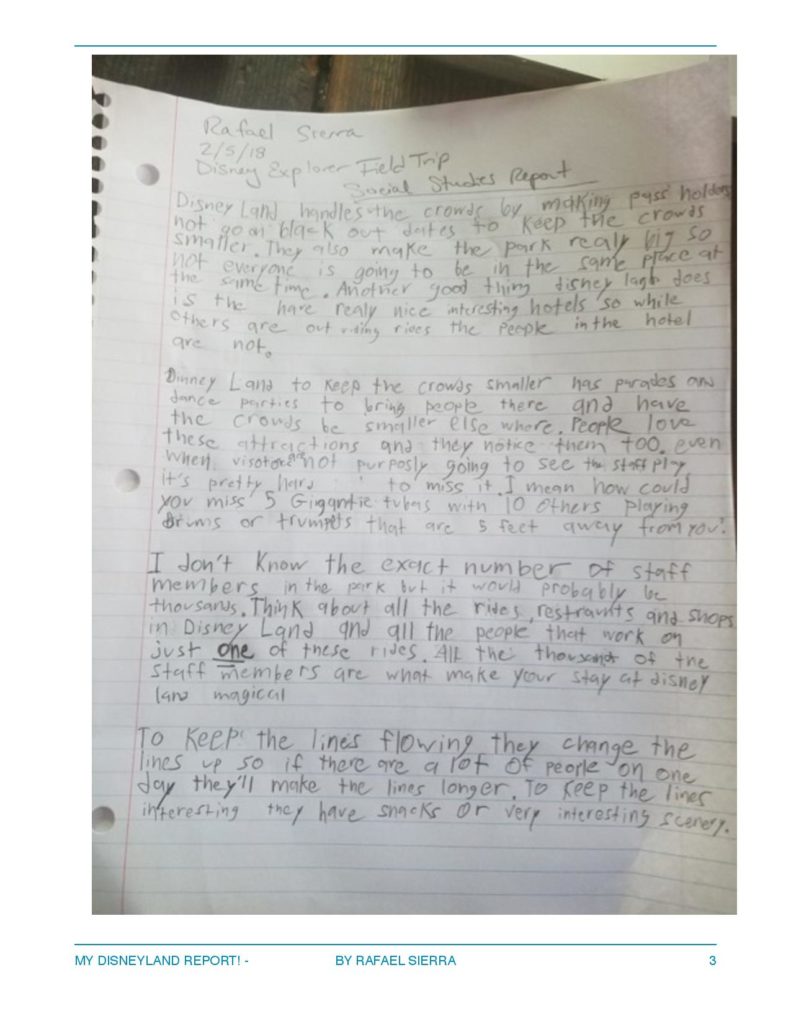 Rafael Sierra
2/5/18
Disney Explorer Field Trip
Social Studies Report
Disney Land handles the crowds by making pass holders
not go on black out dates to keep the crowds
smaller. They also make the park realy big so
not everyone is going to be in the same place at
the same time. Another good thing disney land does
is the have realy nice interesting hotels so while
others are out riding rides the people in the hotel
are not.
Disney Land to keep the crowds smaller has parades and
dance parties to bring people there and have
the crowds be smaller else where. People love
these attractions and they notice them too. even
when visotors are not purposly going to see the staff play
it's pretty hard to miss it. I mean how could
you miss 5 Gigantic tubas with 10 others playing
Drums or trumpets that are 5 feet away from you!
I don't know the exact number of staff
members in the park but it would probably be
thousands. Think about all the rides, restraunts and shops
in Disney Land and all the people that work on
just one of these rides. All the thousands of the
staff members are what make your stay at disney
land magical
To keep the lines flowing they change the
lines up so if there are a lot of people on one
day they'll make the lines longer. To keep the lines
interesting they have snacks or very interesting scenery.
MY DISNEYLAND REPORT! - BY RAFAEL SIERRA 3